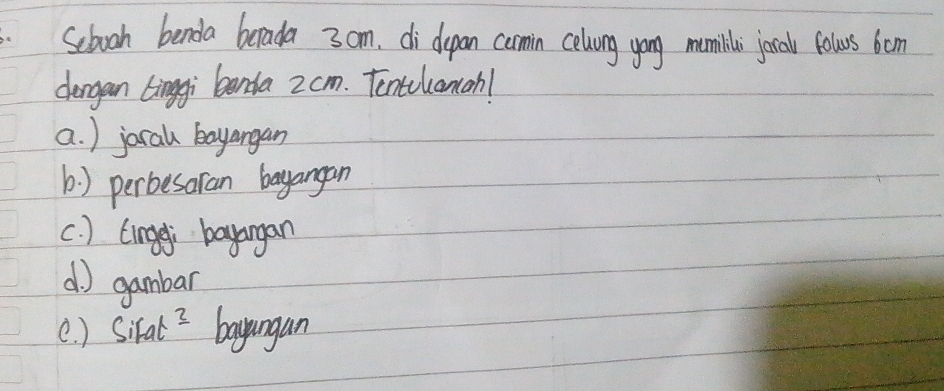 5. Sebuah benda berada 3 cm. di depan cermin cekung yang memiliki jarak fokus 6cm
dengan tinggi benda 2 cm. Tentukanlah!
a.) jarak bayangan
b.) perbesaran bayangan
c.) tinggi bayangan
d.) gambar
e.) Sifat² bayangan